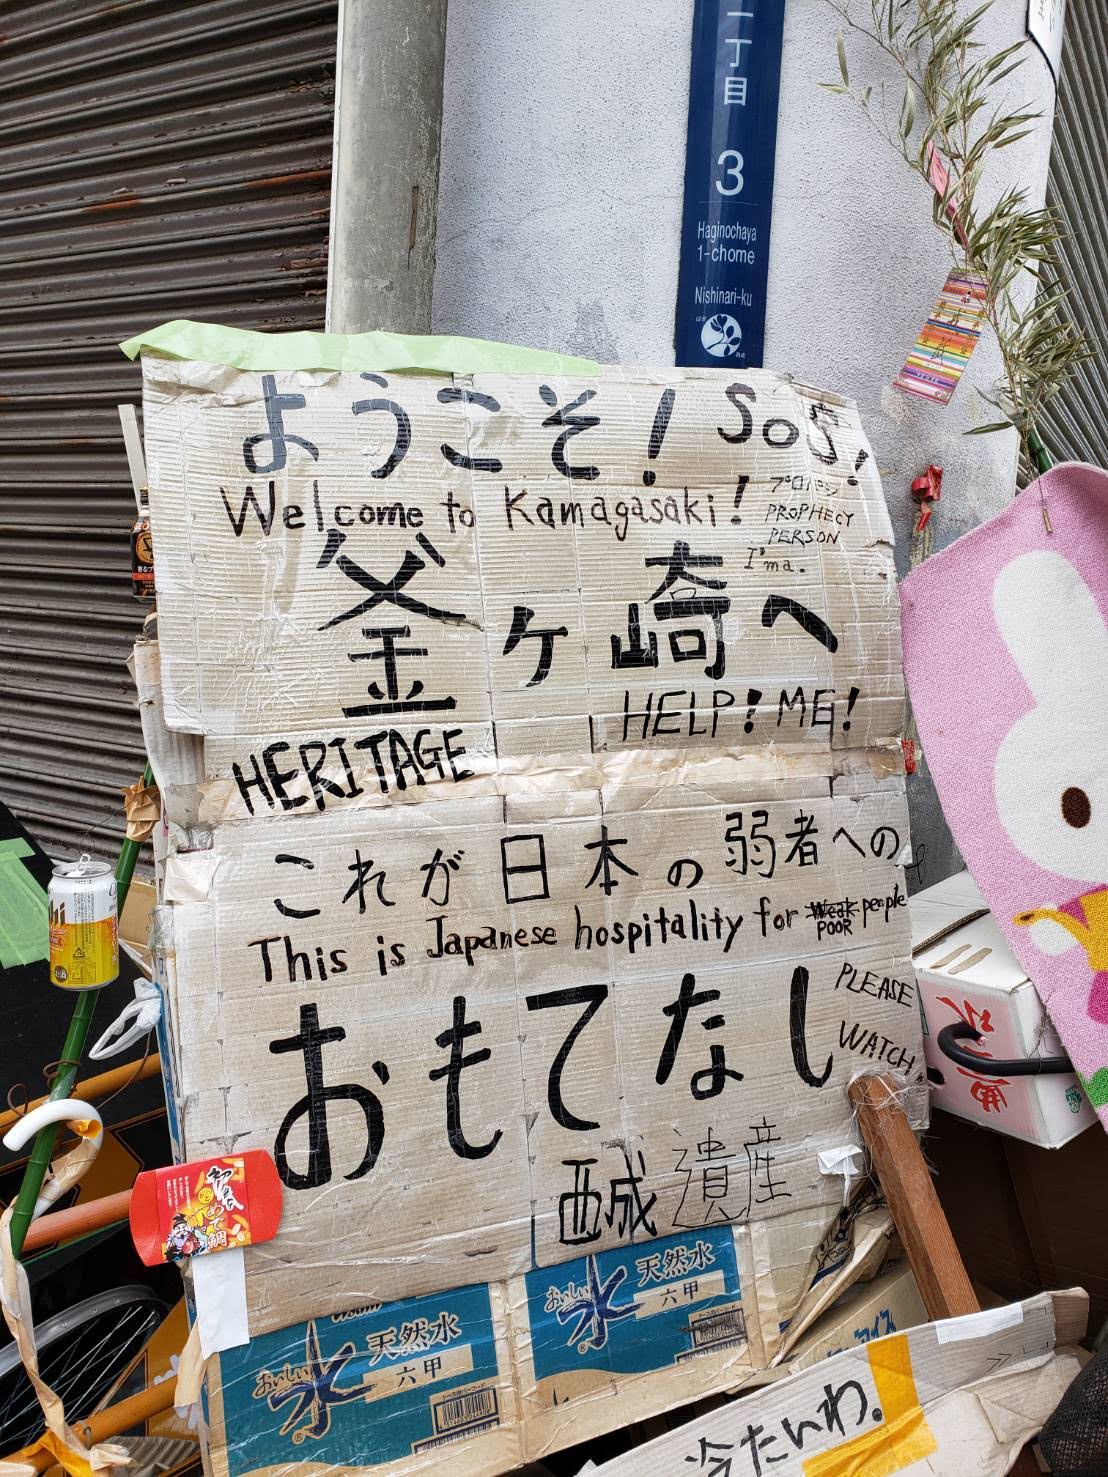 一丁目
3
Haginochaya
1-chome
Nishinari-ku
ようこそ! SOS!
Welcome to Kamagasaki!
PROPHECY
PERSON
I'ma.
釜ヶ崎へ
HELP! ME!
HERITAGE
これが日本の弱者への
This is Japanese hospitality for Weak people
POOR
おもてなし
PLEASE
WATCH
西成 遺産
おいしい水 天然水
六甲
おいしい水 天然水
六甲
冷たいわ.